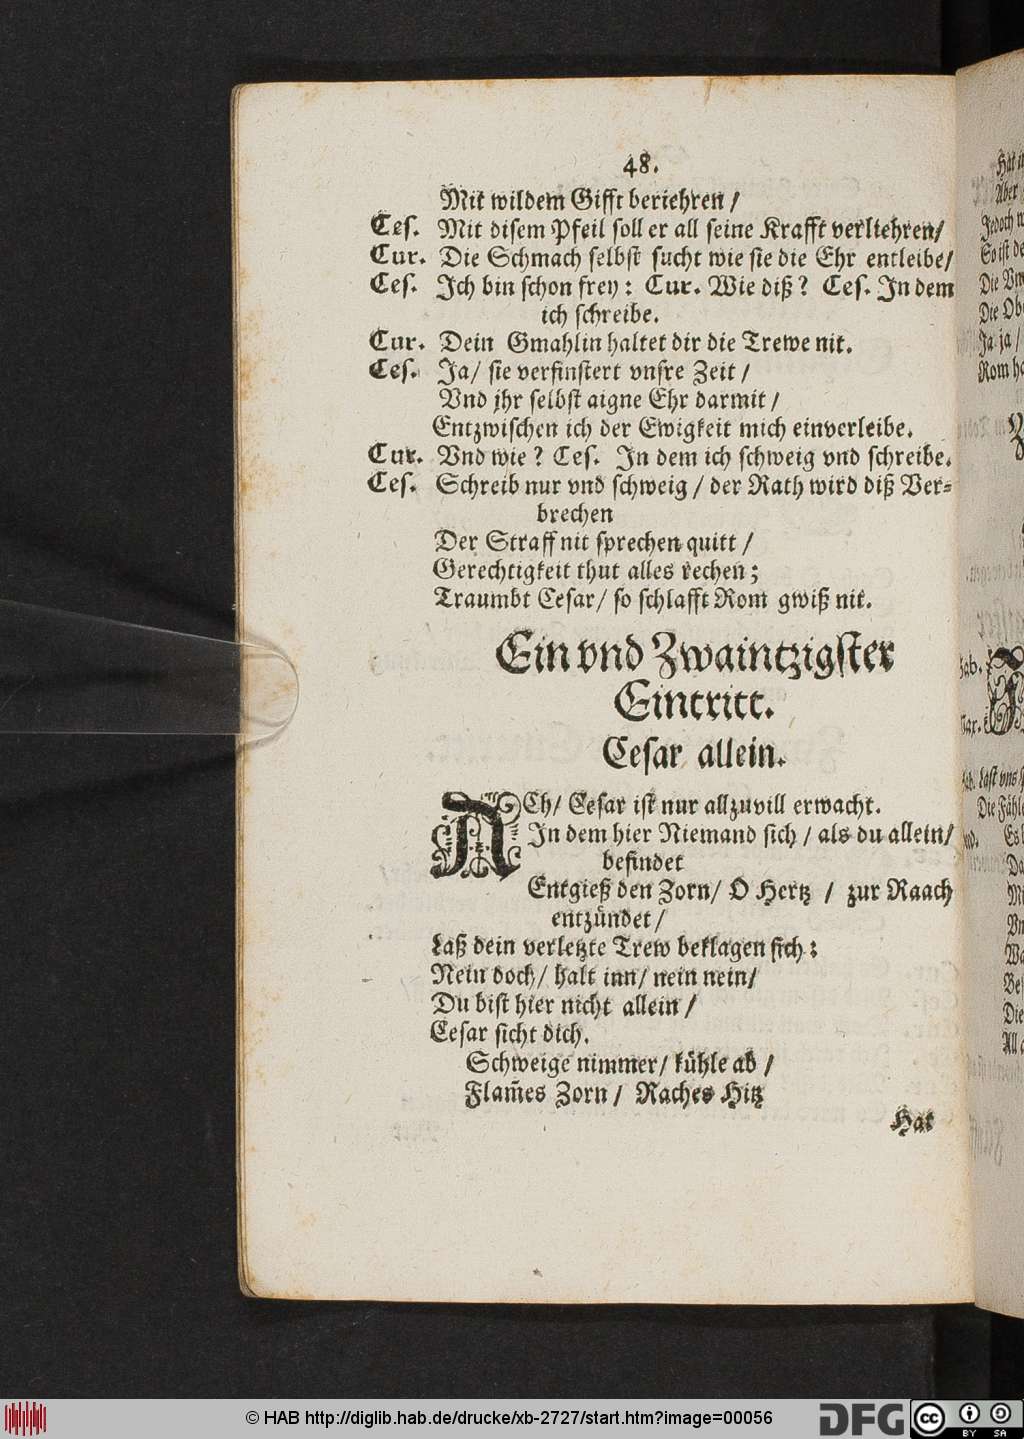 48.
Mit wildem Gifft beriehren /
Ces. Mit disem Pfeil soll er all seine Krafft verliehren/
Cur. Die Schmach selbst sucht wie sie die Ehr entleibe/
Ces. Ich bin schon frey: Cur. Wie diß? Ces. In dem
ich schreibe.
Cur. Dein Gmahlin haltet dir die Trewe nit.
Ces. Ja/ sie verfinstert vnsre Zeit /
Vnd jhr selbst aigne Ehr darmit /
Entzwischen ich der Ewigkeit mich einverleibe.
Cur. Vnd wie? Ces. In dem ich schweig vnd schreibe.
Ces. Schreib nur vnd schweig / der Rath wird diß Ver=
brechen
Der Straff nit sprechen quitt /
Gerechtigkeit thut alles rechen;
Traumbt Cesar/ so schlafft Rom gwiß nit.
Ein vnd Zwaintzigster
Eintritt.
Cesar allein.
ACh/ Cesar ist nur allzuvill erwacht.
In dem hier Niemand sich / als du allein/
befindet
Entgieß den Zorn/ O Hertz / zur Raach
entzündet /
Laß dein verletzte Trew beklagen sich:
Nein doch/ halt inn/ nein nein/
Du bist hier nicht allein /
Cesar sicht dich.
Schweige nimmer/ kühle ab /
Flam̃es Zorn / Raches Hitz
Hat
© HAB http://diglib.hab.de/drucke/xb-2727/start.htm?image=00056
DFG
cc BY SA